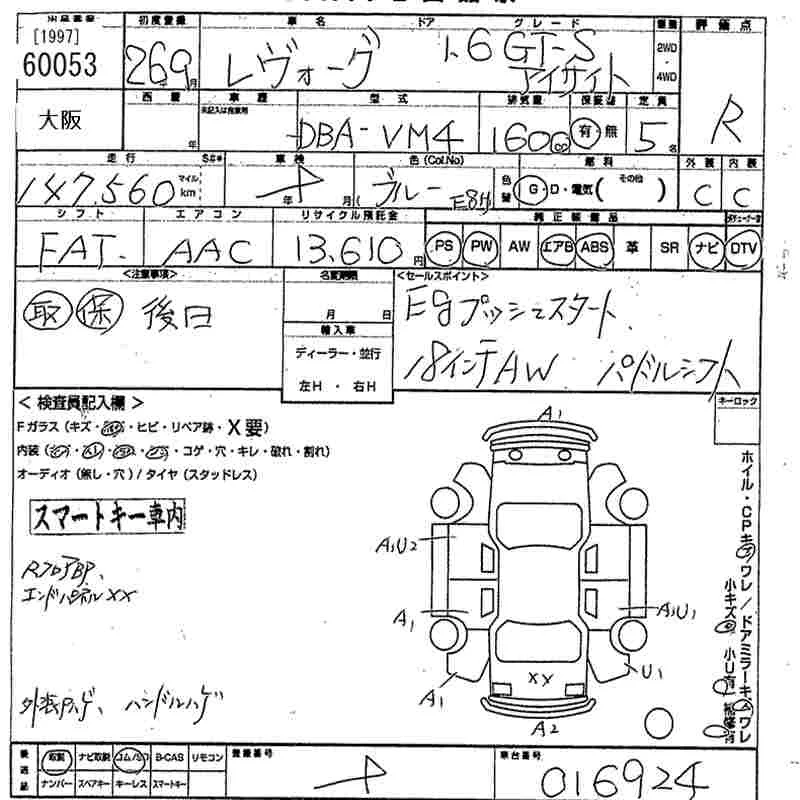 初度登録 車名 ドア グレード 評価点
[1997]
60053 26 9月 レヴォーグ 1.6 GT-S
アイサイト
2WD
・
4WD
R
大阪
西暦 車歴 型式 排気量 定員
年 未記入は自家用 DBA-VM4 1600cc 有・無 5名
走行 車検 色(Col.No) 燃料 外装 内装
147,560 マイル km 年 月 ブルー E8H 色替 G・D・電気( その他 ) C C
シフト エアコン リサイクル預託金 純正装備品
FAT AAC 13,610円 PS PW AW エアB ABS 革 SR ナビ DTV
<注意事項> 名変期限 <セールスポイント>
取 保 後日 月 日 Egプッシュスタート
輸入車
ディーラー・並行
左H ・ 右H
18インチAW パドルシフト
キーロック
<検査員記入欄>
Fガラス(キズ・ ・ヒビ・リペア跡・X要)
内装( ・コゲ・穴・キレ・破れ・割れ)
オーディオ(無し・穴)/タイヤ(スタッドレス)
スマートキー車内
エンドパネルXX
ハンドルハゲ
A1
A,U2
A1
A1
A,U1
U1
XX
A2
ホイル・CPキズワレ/ドアミラーキズワレ
後送品 取説 ナビ取説 B-CAS リモコン 登録番号 車台番号
ナンバー スペアキー キーレス スマートキー 016924